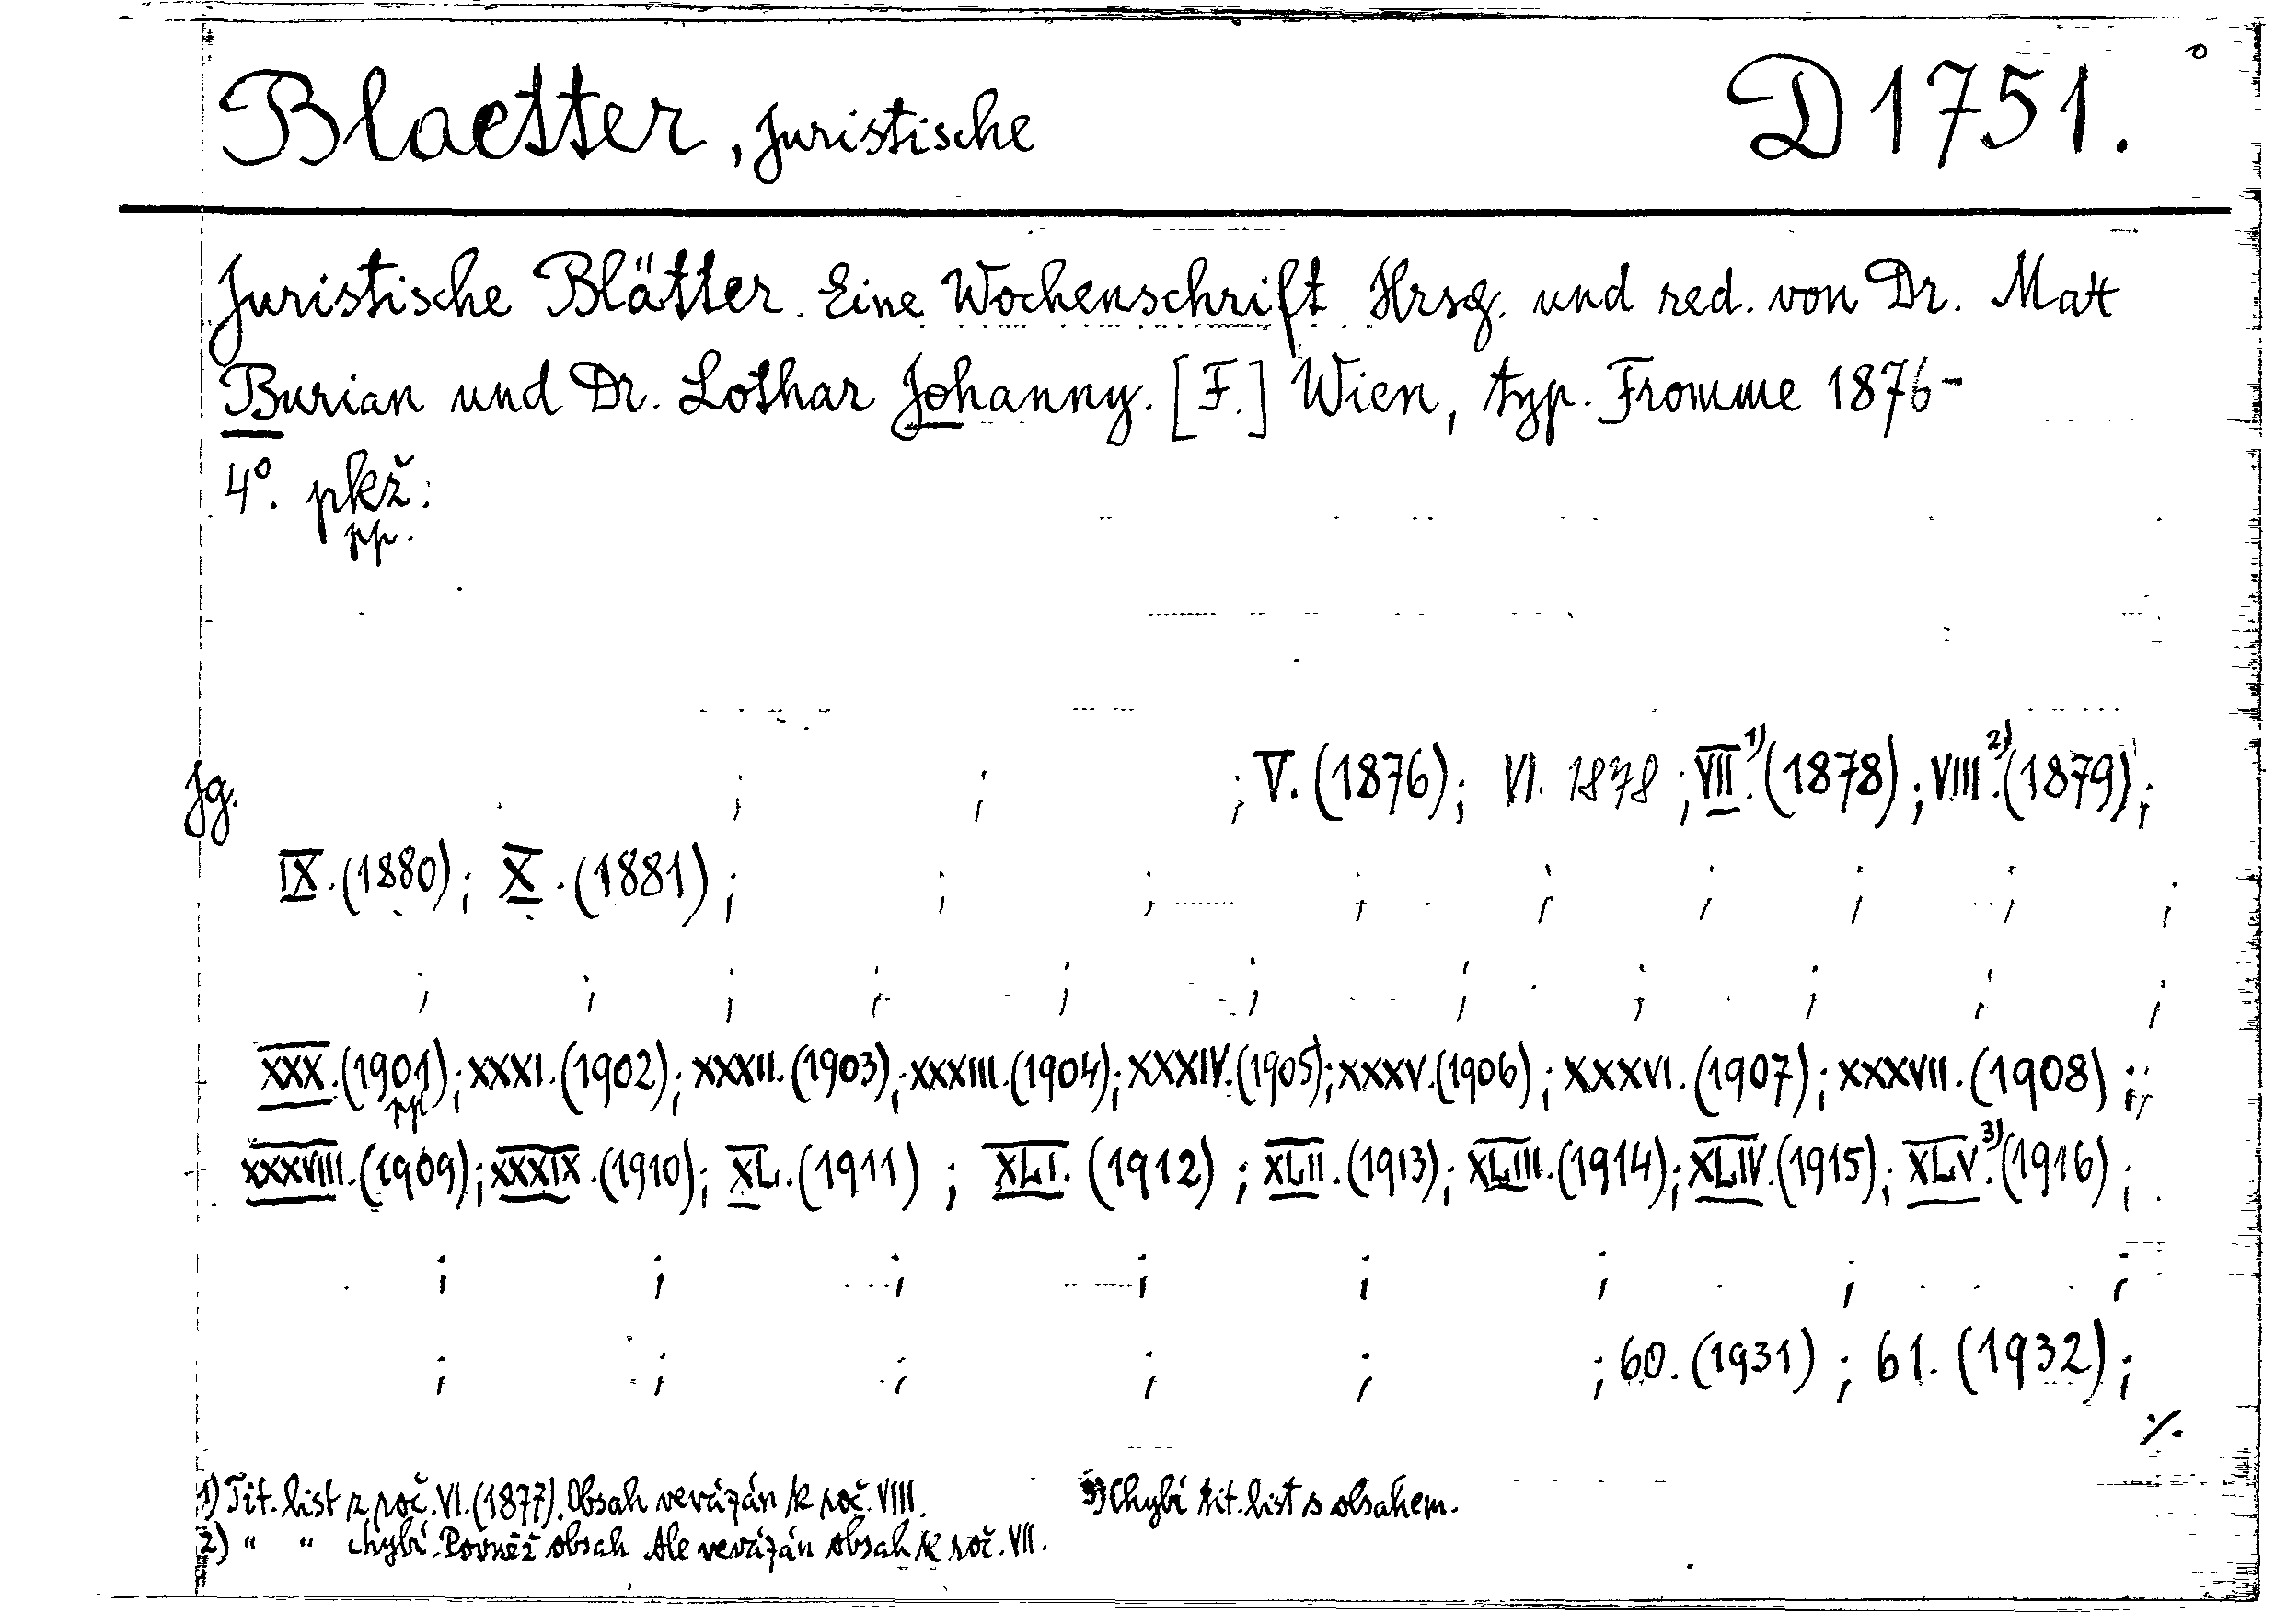 Blaetter, Juristische D 1751.
Juristische Blätter. Eine Wochenschrift Hrsg. und red. von Dr. Matt
Burian und Dr. Lothar Johanny. [F.] Wien, typ. Fromme 1876-
4°. pkž:
pp.
Jg. ; ; ; V. (1876); VI. 1878 ; VII.¹⁾ (1878) ; VIII.²⁾ (1879);
IX. (1880); X. (1881) ; ; ; ; ; ; ; ; ;
; ; ; ; ; ; ; ; ; ; ;
XXX. (1901); XXXI. (1902); XXXII. (1903); XXXIII. (1904); XXXIV. (1905); XXXV. (1906) ; XXXVI. (1907) ; XXXVII. (1908) ;
pp
XXXVIII. (1909); XXXIX. (1910); XL. (1911) ; XLI. (1912) ; XLII. (1913); XLIII. (1914); XLIV. (1915); XLV.³⁾ (1916) ;
; ; ; ; ; ; ; ;
; ; ; ; ; ; 60. (1931) ; 61. (1932) ;
./.
1) Tit. list z roč. VI. (1877). Obsah vevázán k roč. VIII. 3) Chybí tit. list s obsahem.
2) " " chybí. Rovněž obsah Ale vevázán obsah k roč. VII.